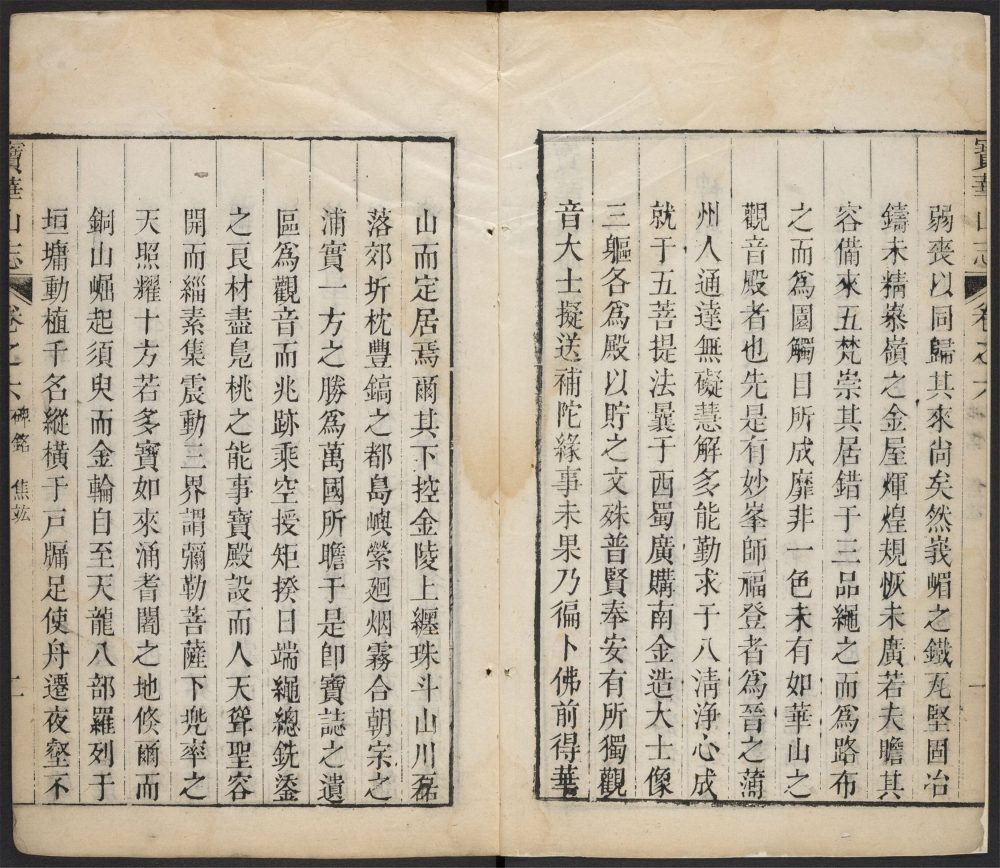 寶華山志 卷之六 一
弱喪以同歸其來尚矣然峩嵋之鐵瓦堅固冶
鑄未精㟭嶺之金屋煇煌規恢未廣若夫瞻其
容備來五梵崇其居錯于三品繩之而為路布
之而為園觸目所成靡非一色未有如華山之
觀音殿者也先是有妙峯師福登者為晉之蒲
州人通達無礙慧解多能勤求于八清淨心成
就于五菩提法曩于西蜀廣購南金造大士像
三軀各為殿以貯之文殊普賢奉安有所獨觀
音大士擬送補陀緣事未果乃徧卜佛前得華
山而定居焉爾其下控金陵上纏珠斗山川磊
落郊圻枕豐鎬之都島嶼縈廻烟霧合朝宗之
浦實一方之勝為萬國所瞻于是卽寶誌之遺
區為觀音而兆跡乘空授矩揆日端繩總銑鋈
之良材盡鳧桃之能事寶殿設而人天聳聖容
開而緇素集震動三界謂彌勒菩薩下兠率之
天照耀十方若多寶如來涌耆闍之地倐爾而
銅山崛起須臾而金輪自至天龍八部羅列于
垣墉動植千名縱橫于戶牖足使舟遷夜壑不
寶華山志 卷之六 碑銘 焦竑 二